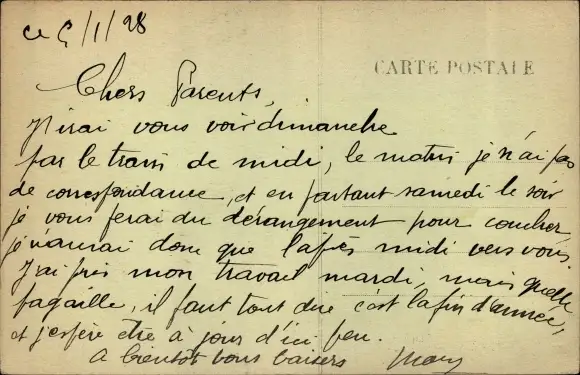 ce 5/1/28
CARTE POSTALE
Chers Parents,
J'irai vous voir dimanche
par le train de midi, le matin je n'ai pas
de correspondance, et en partant samedi le soir
je vous ferai du dérangement pour coucher
je n'aurai donc que l'après midi vers vous.
J'ai pris mon travail mardi, mais quelle
pagaille, il faut tout dire c'est la fin d'année,
et j'espère être à jour d'ici peu.
A bientôt bons baisers